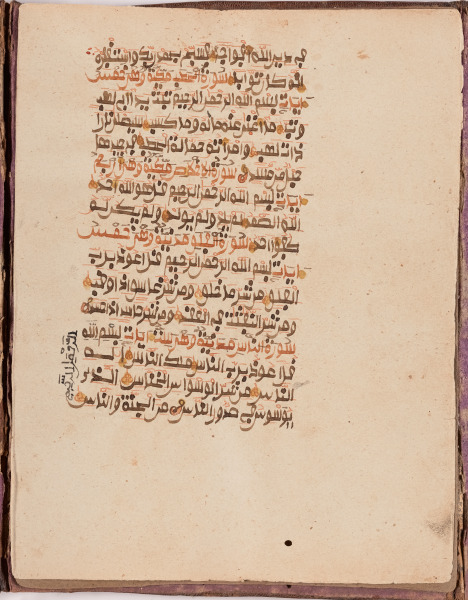 في دين الله افواجا فسبح بحمد ربك واستغفره
انه كان توابا سورة مكية وهي خمس
ايات بسم الله الرحمن الرحيم تبت يدا ابي لهب
وتب ما اغنى عنه ماله وما كسب سيصلى نارا
ذات لهب وامراته حمالة الحطب في جيدها
حبل من مسد سورة الاخلاص مكية وهي اربع
ايات بسم الله الرحمن الرحيم قل هو الله احد
الله الصمد لم يلد ولم يولد ولم يكن له
كفوا احد سورة الفلق مدنية وهي خمس
ايات بسم الله الرحمن الرحيم قل اعوذ برب
الفلق من شر ما خلق ومن شر غاسق اذا وقب
ومن شر النفثت في العقد ومن شر حاسد اذا حسد
سورة الناس مدنية وهي ست ايات بسم الله
الرحمن الرحيم
قل اعوذ برب الناس ملك الناس اله
الناس من شر الوسواس الخناس الذي
يوسوس في صدور الناس من الجنة والناس